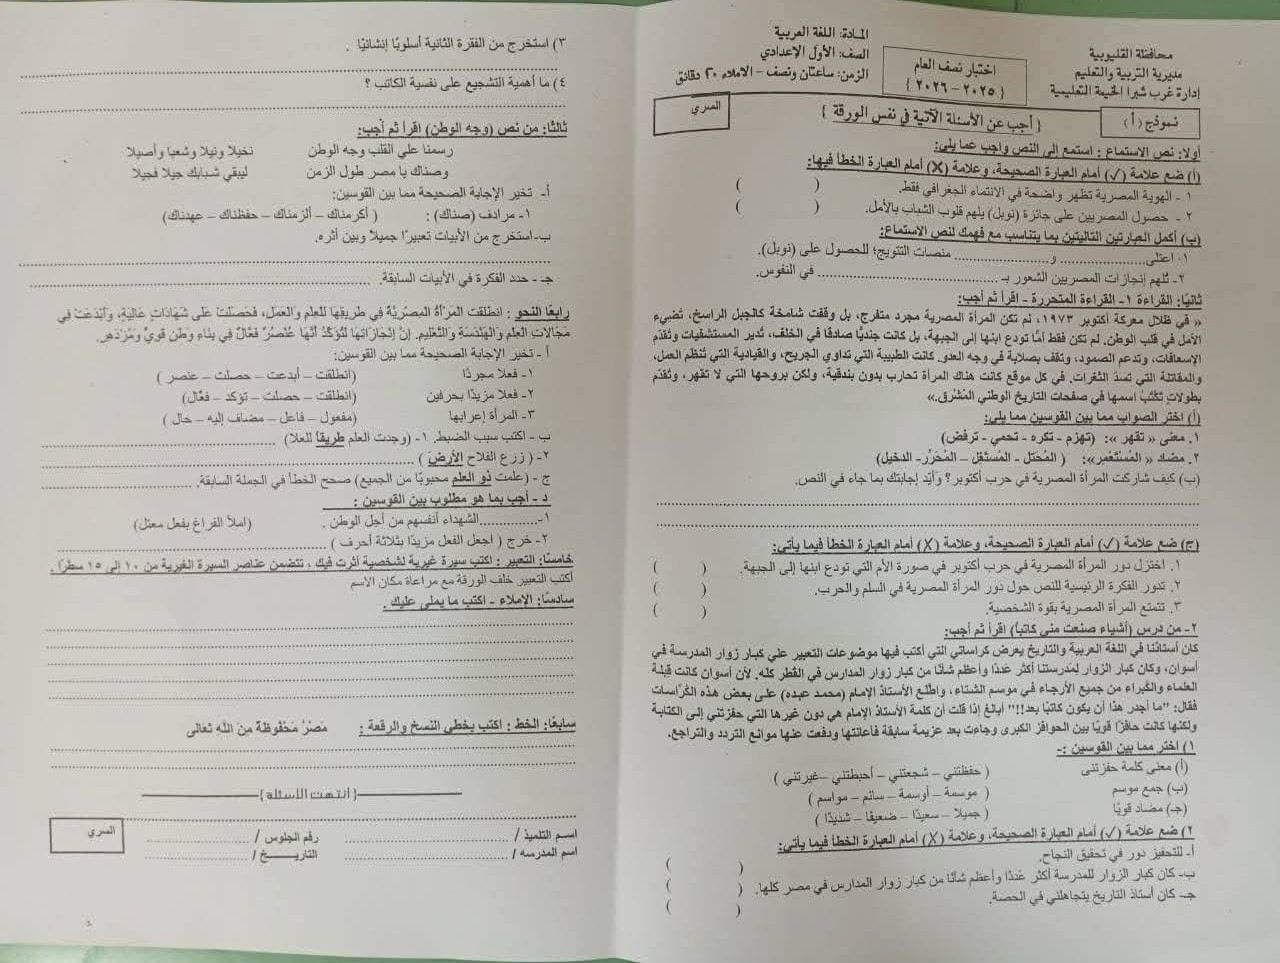 محافظة القليوبية
مديرية التربية والتعليم
إدارة غرب شبرا الخيمة التعليمية
اختبار نصف العام
{ ٢٠٢٥ - ٢٠٢٦ }
المادة: اللغة العربية
الصف: الأول الإعدادي
الزمن: ساعتان ونصف - الاملاء ٢٠ دقائق
نموذج (أ)
{ أجب عن الأسئلة الآتية في نفس الورقة }
السري
أولا: نص الاستماع : استمع إلى النص واجب عما يلي:
(أ) ضع علامة (✓) أمام العبارة الصحيحة، وعلامة (X) أمام العبارة الخطأ فيها:
١ - الهوية المصرية تظهر واضحة في الانتماء الجغرافي فقط. ( )
٢ - حصول المصريين على جائزة (نوبل) يلهم قلوب الشباب بالأمل. ( )
(ب) أكمل العبارتين التاليتين بما يتناسب مع فهمك لنص الاستماع:
١- اعتلى.................... و.................... منصات التتويج؛ للحصول على (نوبل).
٢- تُلهم إنجازات المصريين الشعور بـ .................... في النفوس.
ثانيًا: القراءة ١- القراءة المتحررة - اقرأ ثم أجب:
« في ظلال معركة أكتوبر ١٩٧٣، لم تكن المرأة المصرية مجرد متفرج، بل وقفت شامخة كالجبل الراسخ، تُضيء
الأمل في قلب الوطن. لم تكن فقط أمًا تودع ابنها إلى الجبهة، بل كانت جنديًا صادقًا في الخلف، تُدير المستشفيات وتقدم
الإسعافات، وتدعم الصمود، وتقف بصلابة في وجه العدو. كانت الطبيبة التي تداوي الجريح، والقيادية التي تُنظم العمل،
والمقاتلة التي تسدّ الثغرات. في كل موقع كانت هناك المرأة تحارب بدون بندقية، ولكن بروحها التي لا تقهر، وتُقدّم
بطولاتٍ تكْتُب اسمها في صفحات التاريخ الوطني المُشْرق.»
(أ) اختر الصواب مما بين القوسين مما يلي:
١. معنى « تقهر »: (تهزم - تكره - تحمي - ترفض)
٢. مضاد « المُسْتَعْمِر»: ( المُحْتَل - المُسْتَغِل – المُحَرِّر- الدخيل)
(ب) كيف شاركت المرأة المصرية في حرب أكتوبر؟ وأيّد إجابتك بما جاء في النص.
(ج) ضع علامة (✓) أمام العبارة الصحيحة، وعلامة (X) أمام العبارة الخطأ فيما يأتي:
١. اختزل دور المرأة المصرية في حرب أكتوبر في صورة الأم التي تودع ابنها إلى الجبهة. ( )
٢. تدور الفكرة الرئيسية للنص حول دور المرأة المصرية في السلم والحرب. ( )
٣. تتمتع المرأة المصرية بقوة الشخصية. ( )
٢- من درس (أشياء صنعت مني كاتباً) اقرأ ثم أجب:
كان أستاذنا في اللغة العربية والتاريخ يعرض كراساتي التي أكتب فيها موضوعات التعبير علي كبار زوار المدرسة في
أسوان، وكان كبار الزوار لمَدرستنا أكثر عَددًا وأعظم شأنًا من كبار زوار المدارس في القطر كله، لأن أسوان كانت قبلة
العلماء والكُبراء من جميع الأرجاء في موسم الشتاء، واطّلع الأستاذ الإمام (محمد عبده) على بعض هذه الكُرَّاسات
فقال: "ما أجدر هذا أن يكون كاتبًا بعد!!" أبالغ إذا قلت أن كلمة الأستاذ الإمام هي دون غيرها التي حفزتني إلى الكتابة
ولكنها كانت حافزًا قويًا بين الحوافز الكبرى وجاءت بعد عزيمة سابقة فأعانتها ودفعت عنها موانع التردد والتراجع.
١) اختر مما بين القوسين :-
(أ) معنى كلمة حفزتنى ( حفظتني – شجعتني – أحبطتني –غيرتني )
(ب) جمع موسم ( موسمة – أوسمة – سائم – مواسم )
(جـ) مضاد قويًا ( جميلًا – سعيدًا – ضعيفًا – شديدًا )
٢) ضع علامة (✓) أمام العبارة الصحيحة، وعلامة (X) أمام العبارة الخطأ فيما يأتي:
أ- للتحفيز دور في تحقيق النجاح. ( )
ب- كان كبار الزوار للمدرسة أكثر عَددًا وأعظم شأنًا من كبار زوار المدارس في مصر كلها. ( )
جـ- كان أستاذ التاريخ يتجاهلني في الحصة. ( )
٣) استخرج من الفقرة الثانية أسلوبًا إنشائيًا .
٤) ما أهمية التشجيع على نفسية الكاتب ؟
ثالثًا: من نص (وجه الوطن) اقرأ ثم أجب:
رسمنا علي القلب وجه الوطن نخيلا ونيلا وشعبا وأصيلا
وصناك يا مصر طول الزمن ليبقي شبابك جيلا فجيلا
أ- تخير الإجابة الصحيحة مما بين القوسين:
١- مرادف (صناك) : ( أكرمناك – ألزمناك – حفظناك – عهدناك)
ب-استخرج من الأبيات تعبيرًا جميلا وبين أثره.
جـ - حدد الفكرة في الأبيات السابقة.
رابعًا النحو : انطلقت المَرْأةُ المِصْرِيَّةُ في طَرِيقِهَا لِلعِلْمِ وَالعَمَلِ، فَحَصَلَتْ عَلَى شَهَادَاتٍ عَالِيَةٍ، وَأَبْدَعَتْ فِي
مَجَالَاتِ العِلْمِ وَالهَنْدَسَةِ وَالتَّعْلِيمِ. إنَّ إنْجَازَاتِهَا لَتُؤَكِّدُ أَنَّهَا عُنْصُرٌ فَعَّالٌ فِي بِنَاءِ وَطَنٍ قَوِيٍّ وَمُزْدَهِرٍ.
أ - تخير الإجابة الصحيحة مما بين القوسين:
١- فعلا مجردًا (انطلقت – أبدعت – حصلت – عنصر )
٢- فعلا مزيدًا بحرفين (انطلقت – حصلت – تؤكد – فعَّال)
٣- المرأة إعرابها (مفعول – فاعل – مضاف إليه – حال )
ب - اكتب سبب الضبط. ١- (وجدت العلم طريقًا للعلا)
٢- ( زرع الفلاح الأرضَ )
ج - (علمت ذو العلم محبوبًا من الجميع) صحح الخطأ في الجملة السابقة.
د - أجب بما هو مطلوب بين القوسين :
١-..............الشهداء أنفسهم من أجل الوطن . (املأ الفراغ بفعل معتل)
٢- خرج ( اجعل الفعل مزيدًا بثلاثة أحرف )
خامسًا: التعبير : اكتب سيرة غيرية لشخصية أثرت فيك ، تتضمن عناصر السيرة الغيرية من ١٠ إلى ١٥ سطرًا .
أكتب التعبير خلف الورقة مع مراعاة مكان الاسم
سادسًا: الإملاء - اكتب ما يملى عليك .
سابعًا: الخط : اكتب بخطي النسخ والرقعة : مَصْرُ مَحْفُوظَةٌ مِنَ اللَّهِ تَعَالَى
{ انتهت الأسئلة }
اسم التلميذ / رقم الجلوس /
اسم المدرسة / التاريخ /
السري